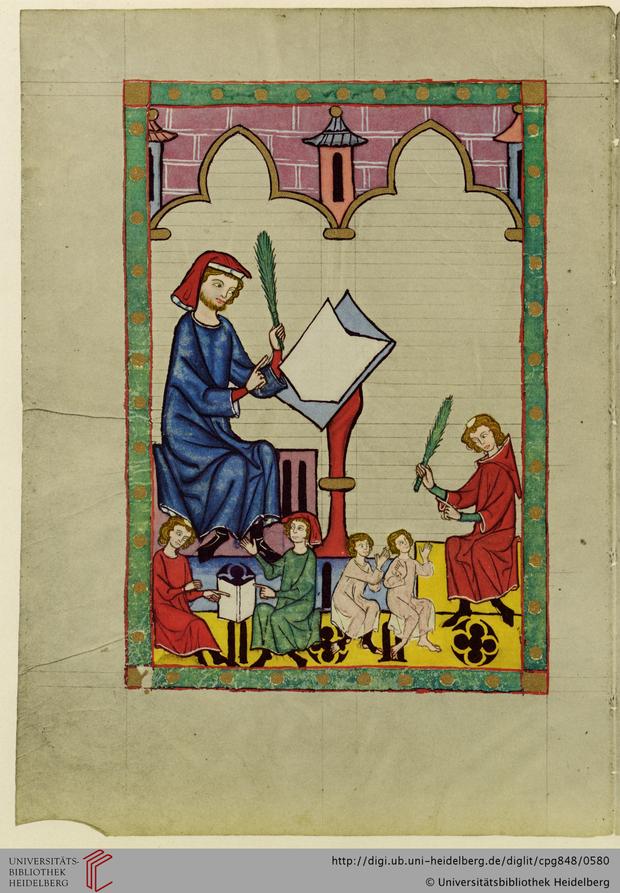 UNIVERSITÄTS-
BIBLIOTHEK
HEIDELBERG
http://digi.ub.uni-heidelberg.de/diglit/cpg848/0580
© Universitätsbibliothek Heidelberg